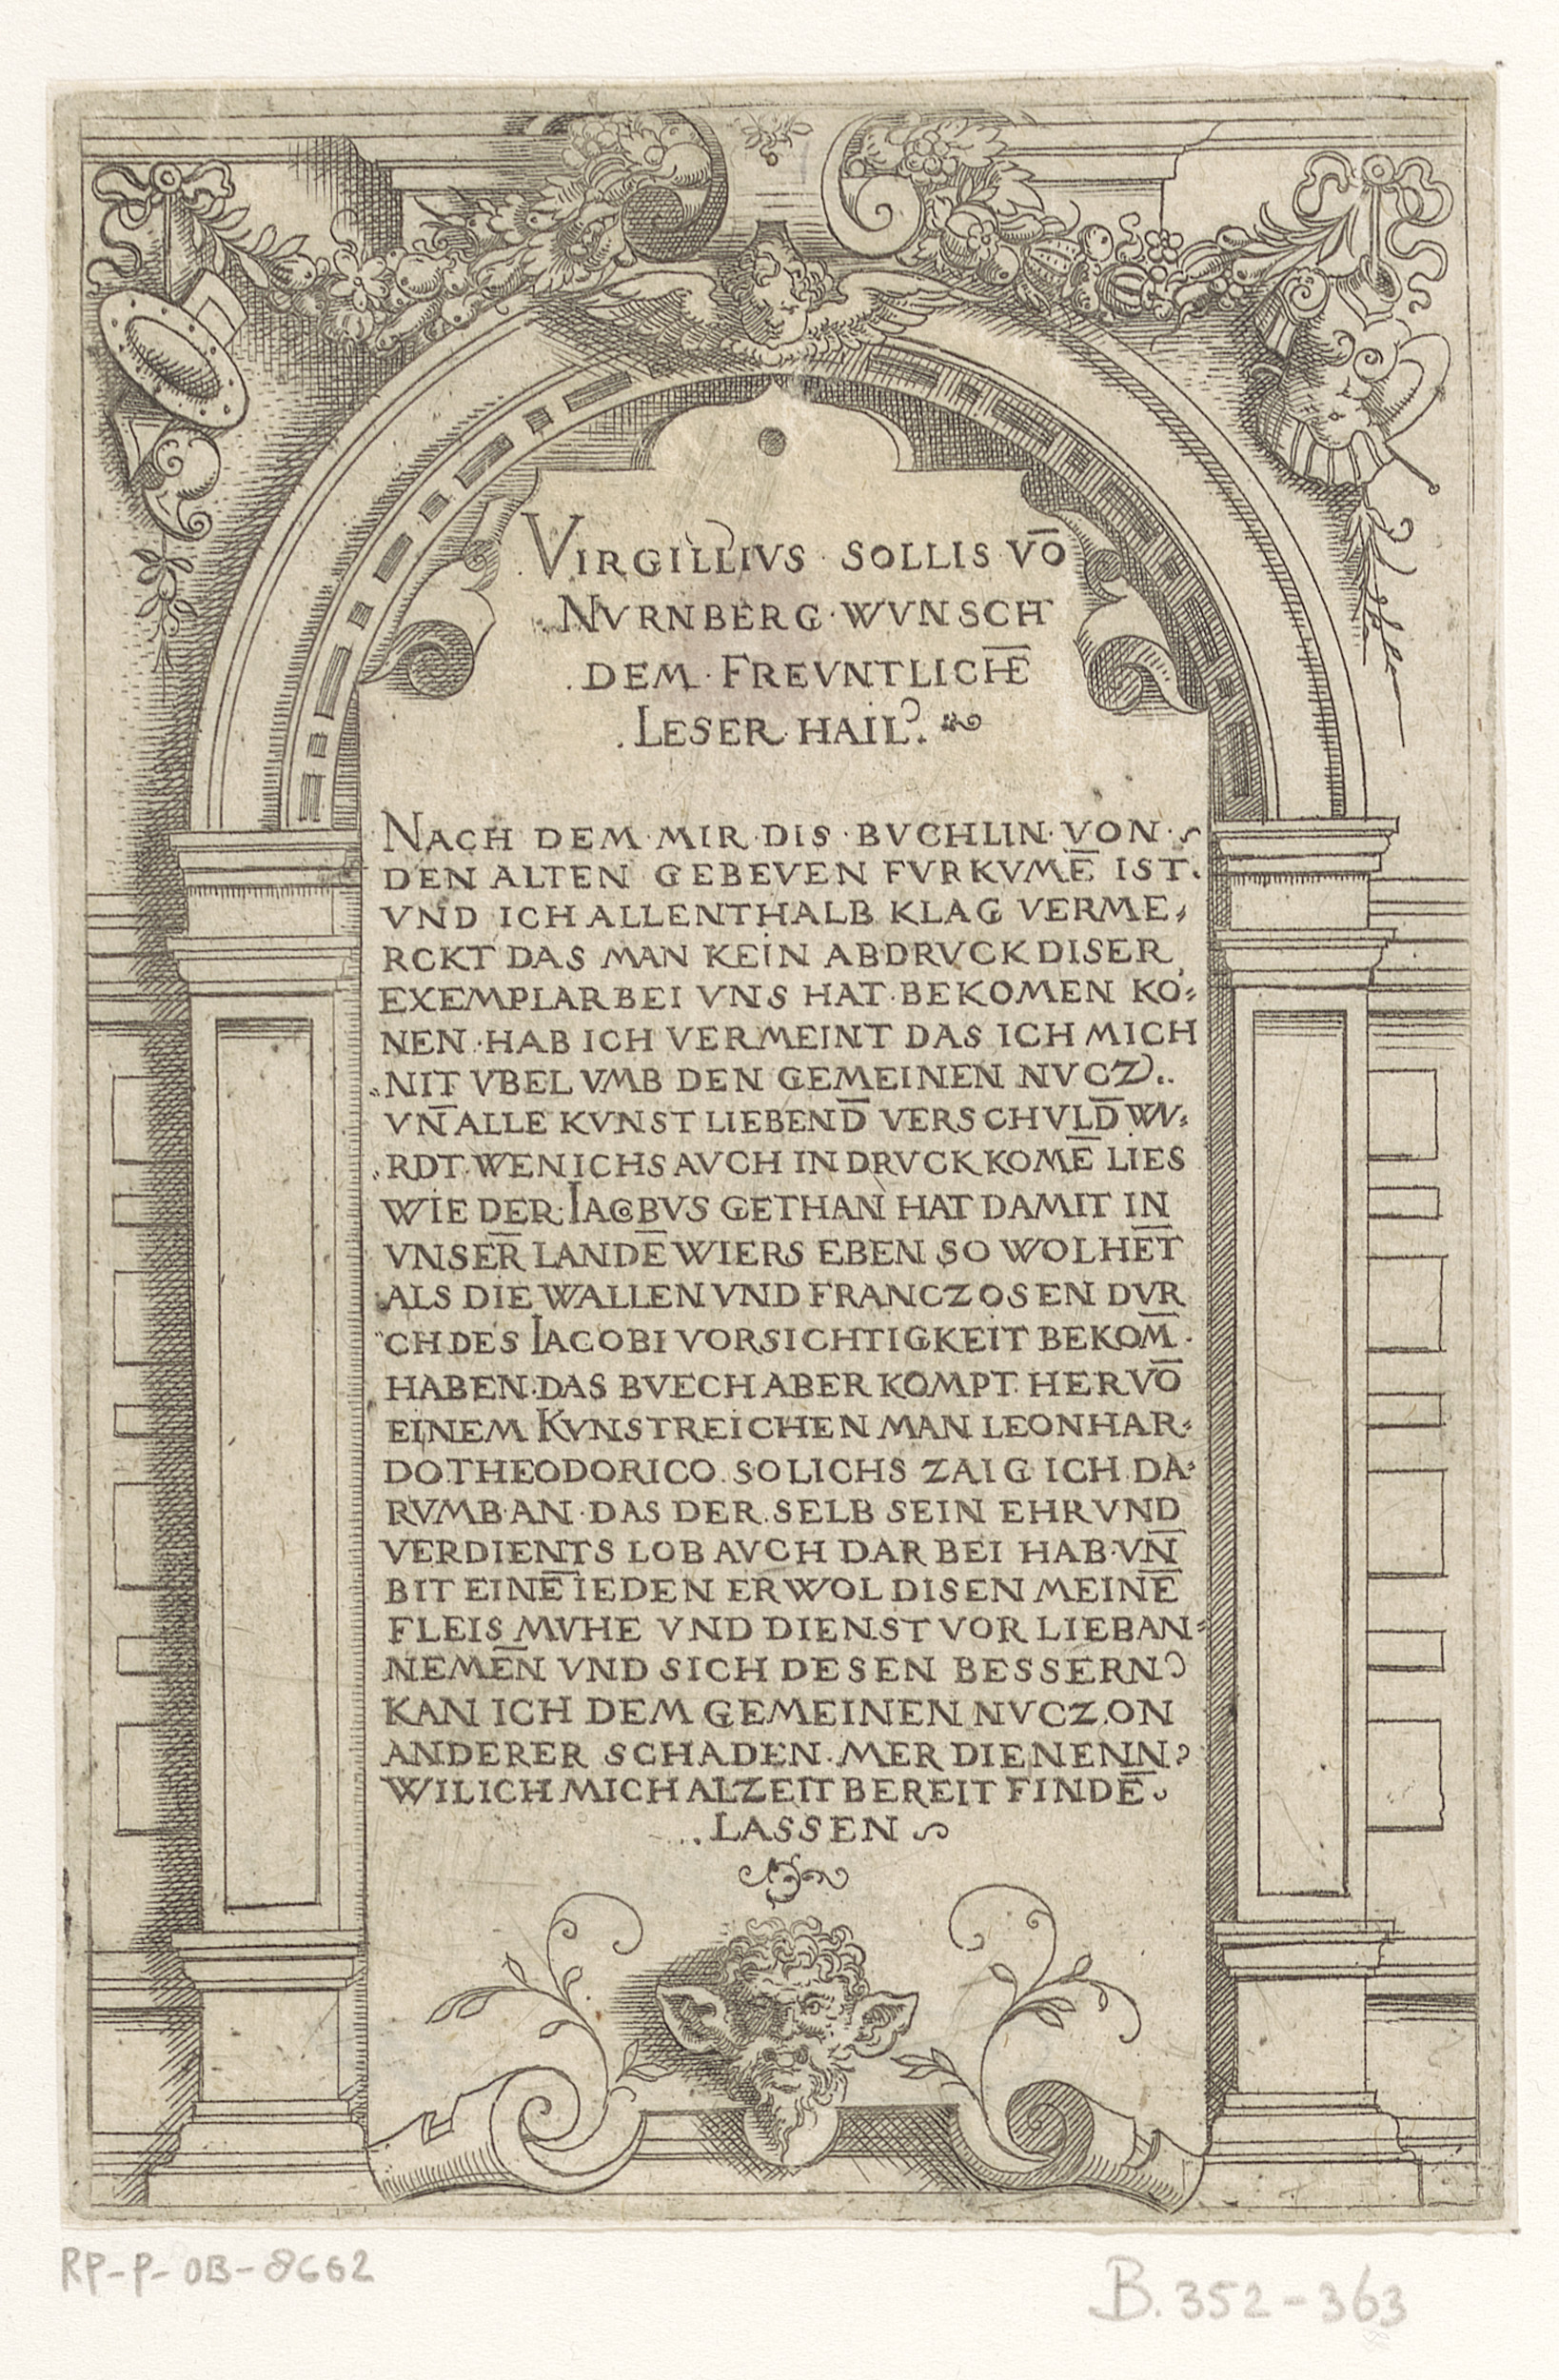 VIRGILLIVS · SOLLIS VŌ
NVRNBERG · WVNSCH
. DEM · FREVNTLICHĒ
. LESER HAIL.
NACH DEM · MIR · DIS · BVCHLIN · VON ·
DEN ALTEN GEBEVEN FVRKVMĒ IST.
VND ICH ALLENTHALB KLAG VERME⸗
RCKT DAS MAN KEIN ABDRVCK DISER
EXEMPLAR BEI VNS HAT · BEKOMEN KO⸗
NEN · HAB ICH VERMEINT DAS ICH MICH
NIT VBEL VMB DEN GEMEINEN NVCZ..
VN̄ ALLE KVNST LIEBEND̄ VERSCHVLD̄ WV⸗
RDT · WEN ICHS AVCH IN DRVCK KOMĒ LIES
WIE DER · IACOBVS GETHAN HAT DAMIT IN
VNSER̄ LANDĒ WIERS EBEN SO WOL HĒT
ALS DIE WALLEN VND FRANCZOSEN DVR
CH DES IACOBI VORSICHTIGKEIT BEKOM̄ ·
HABEN · DAS BVECH ABER KOMPT · HER VŌ
EINEM KVNSTREICHEN MAN LEONHAR⸗
DO · THEODORICO · SOLICHS ZAIG ICH DA⸗
RVMB · AN · DAS DER · SELB SEIN EHR VND
VERDIENTS LOB AVCH DAR BEI HAB · VN̄
BIT EINĒ IEDEN ER WOL DISEN MEINĒ
FLEIS MVHE VND DIENST VOR LIEB AN⸗
NEMĒN VND SICH DESEN BESSERN
KAN ICH DEM GEMEINEN NVCZ · ON
ANDERER SCHADEN · MER DIENENN
WIL ICH MICH ALZEIT BEREIT FINDĒ
... LASSEN
RP-P-OB-8662
B. 352-363